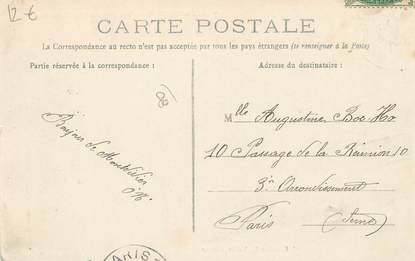 12 €
CARTE POSTALE
La Correspondance au recto n'est pas acceptée par tous les pays étrangers (se renseigner à la Poste)
Partie réservée à la correspondance :
Adresse du destinataire :
Bonjour de Montdidier
Mlle Augustine Boc
10 Passage de la Réunion 10
3e Arrondissement
Paris (Seine)